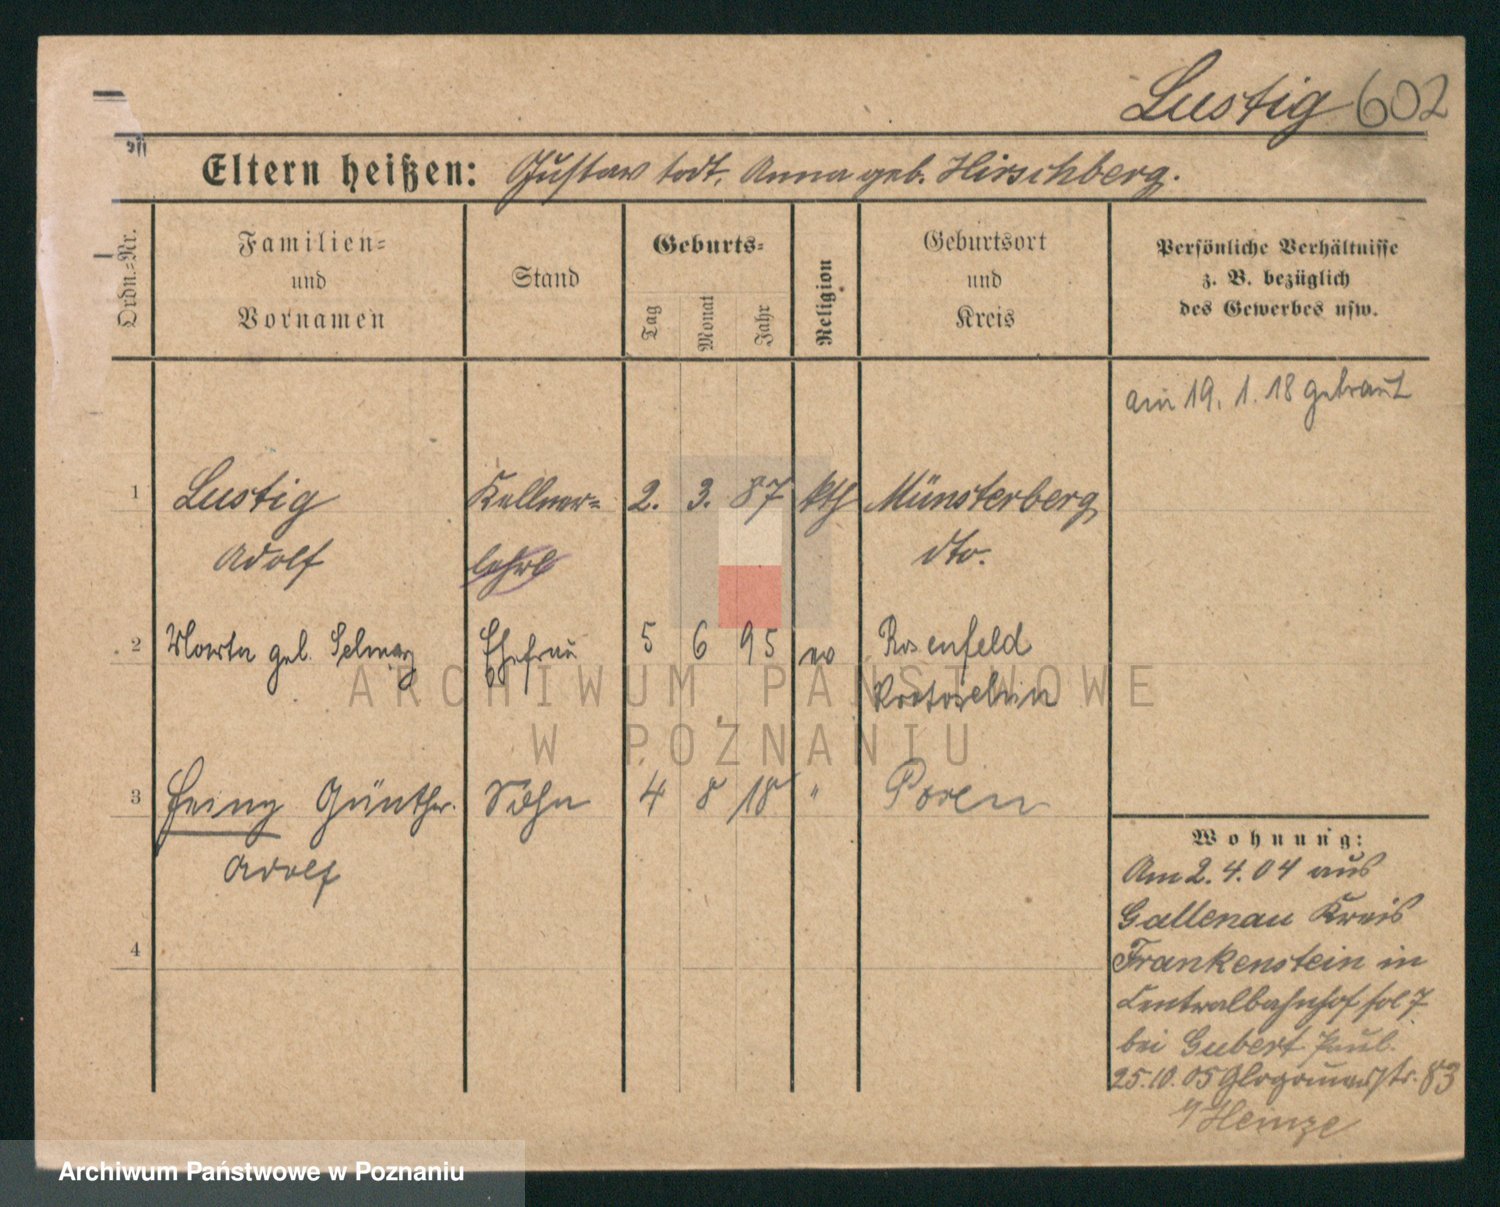 Lustig 602
Eltern heißen: Gustav todt, Anna geb. Hirschberg.
Ordn.=Nr.
Familien=
und
Vornamen
Stand
Geburts=
Tag
Monat
Jahr
Religion
Geburtsort
und
Kreis
Persönliche Verhältnisse
z. B. bezüglich
des Gewerbes usw.
am 19. 1. 18 getraut
1 Lustig Kellner= 2. 3. 87 kth Münsterberg
Adolf lehrl dto.
2 Marta geb. Ehefrau 5 6 95 ev Rosenfeld
Krotoschin
3 Heinz Günther Sohn 4 8 18 " Posen
Adolf
4
Wohnung:
Am 2. 4. 04 aus
Gallenau Kreis
Frankenstein in
Centralbahnhof sol 7
bei Gubert Paul.
25. 10. 05 Glogauerstr. 83
b/Heinze
ARCHIWUM PAŃSTWOWE
W POZNANIU
Archiwum Państwowe w Poznaniu